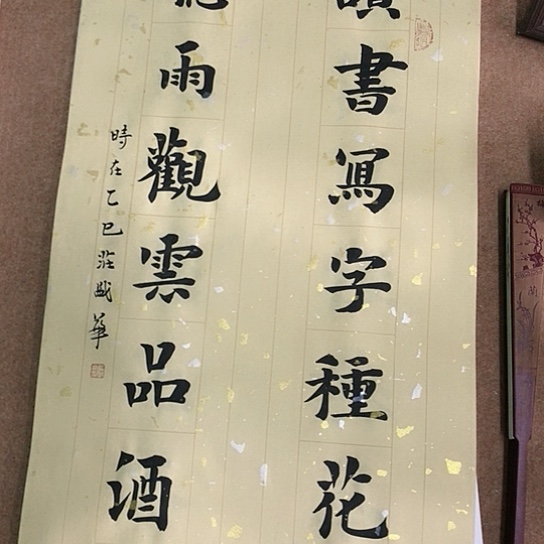 讀書寫字種花
聽雨觀雲品酒
時在乙巳莊晟華